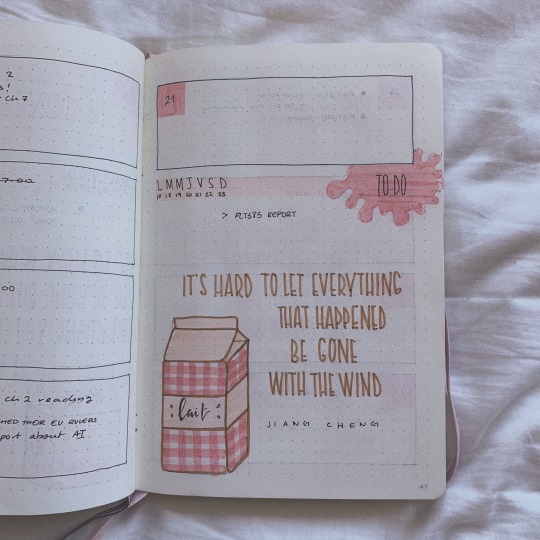 2
ch 7
7:00
00
ch 2 reading
THEIR EU RULERS
port about AI
21
L M M J V S D
17 18 19 20 21 22 23
TO DO
> FLT385 REPORT
IT'S HARD TO LET EVERYTHING
THAT HAPPENED
BE GONE
WITH THE WIND
JIANG CHENG
lait
47